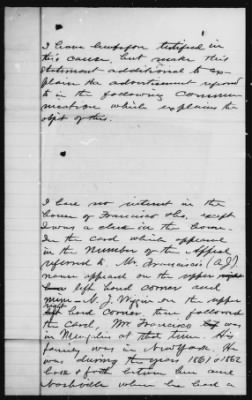 I have heretofore testified in
this cause, but make this
statement additional to ex-
plain the advertisement referred
to in the following commu-
nication which explains the
objt of this.
I have no interest in the
house of Francisco & Co. except
I was a clerk in the house.
In the card which appeared
in the Number of the Appeal
referred to, Mr. Francisco's (A.J)
name appeard on the upper
left hand corner and
mine — N. J. Wiggin on the upper
hand corner, then followed
the card, Mr Francisco was
in Memphis at that time. His
family was in New York. He
was during the years 1861 & 1862
back & forth between here and
Nashville where he had a